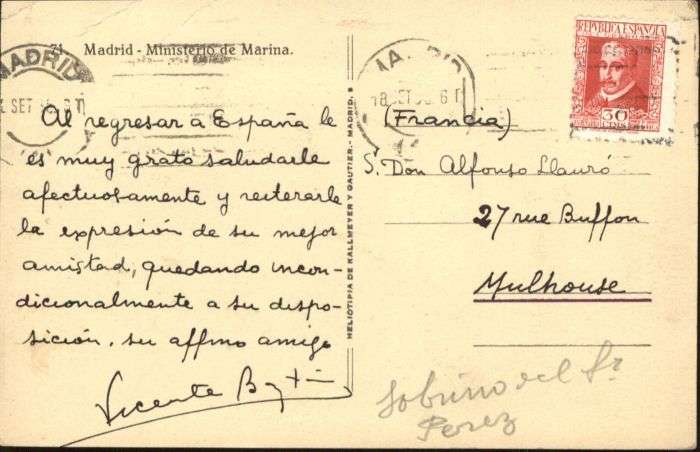 71 Madrid - Ministerio de Marina.
MADRID
SET
6 T
Al regresar á España le
es muy grato saludarle
afectuosamente y reiterarle
la expresión de su mejor
amistad, quedando incon-
dicionalmente a su dispo-
sición, su affmo amigo
Vicente
HELIOTIPIA DE KALLMEYER Y GAUTIER.-MADRID.
18 SET 6 T
REPUBLICA ESPAÑOLA
30
CTS
(Francia)
S. Don Alfonso Llauró
27 rue Buffon
Mulhouse
Sobrino del Sr
Perez